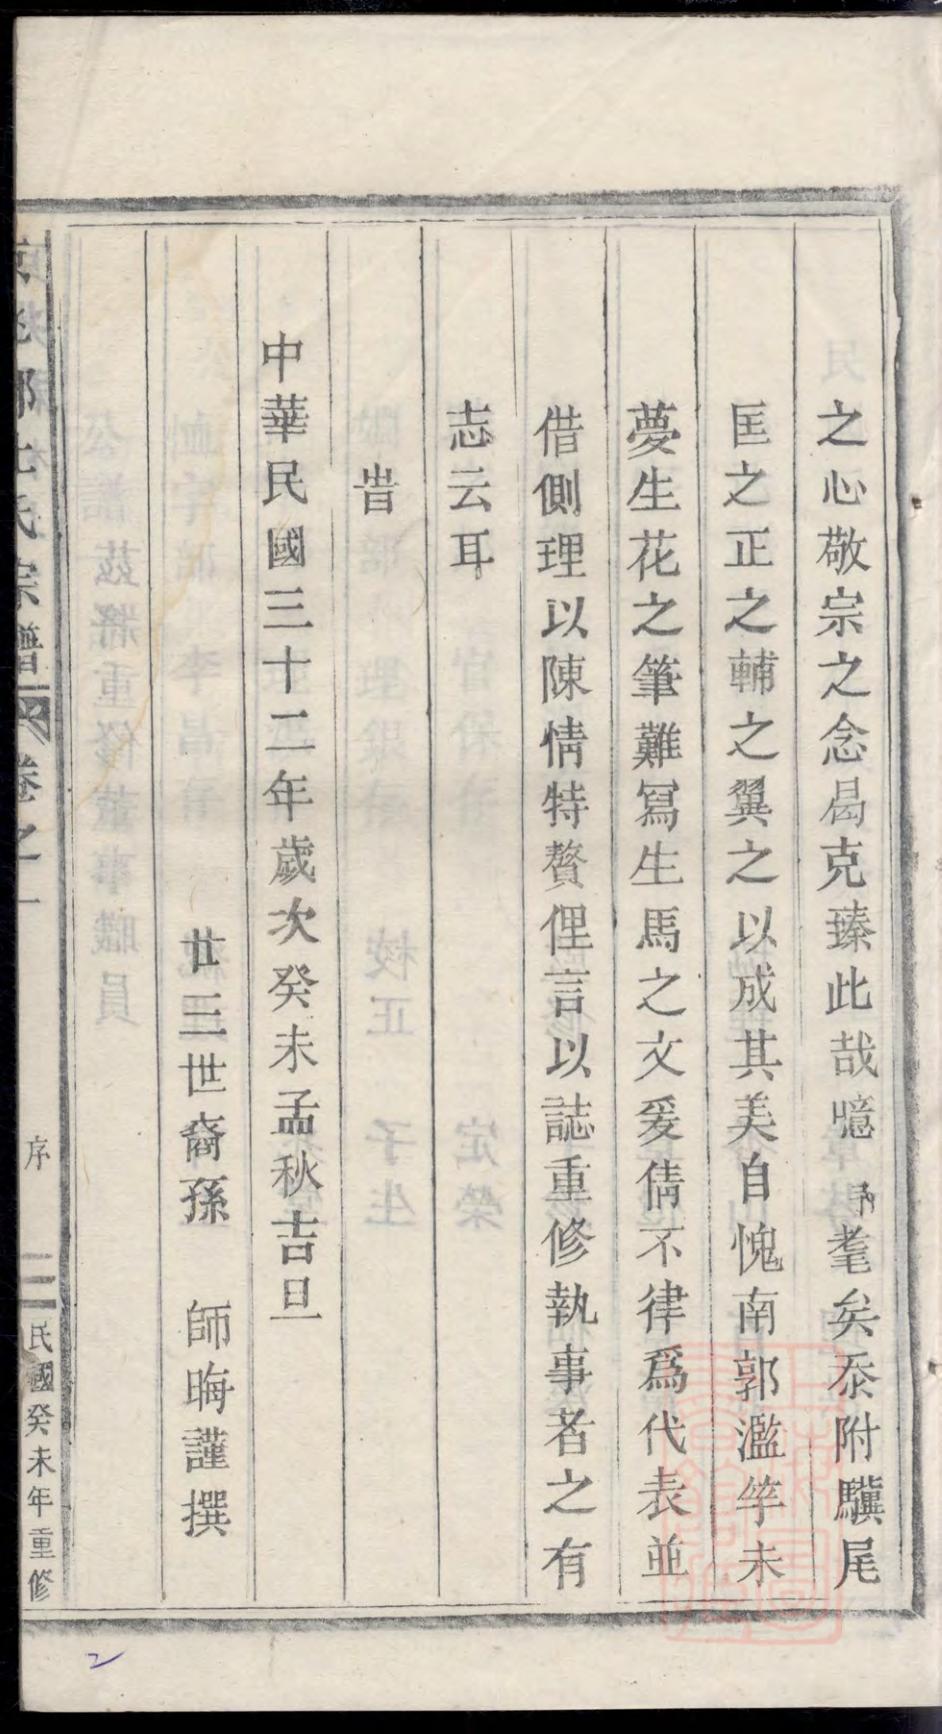 之心敬宗之念曷克臻此哉噫予耄矣忝附驥尾
匡之正之輔之翼之以成其美自愧南郭濫竽未
夢生花之筆難冩生馬之文爰倩不律爲代表並
借側理以陳情特贅俚言以誌重修執事者之有
志云耳
旹
中華民國三十二年歲次癸未孟秋吉旦
廿三世裔孫 師晦謹撰
氏宗譜 卷之一 序 三 民國癸未年重修
2